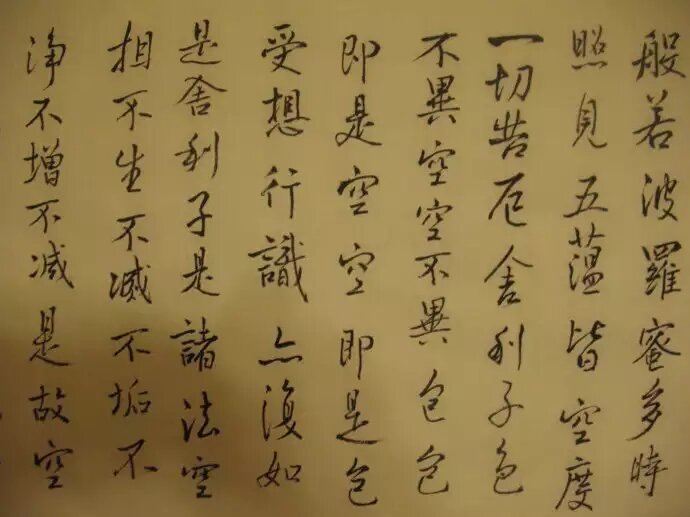 般若波羅蜜多時
照見五蘊皆空度
一切苦厄舍利子色
不異空空不異色色
即是空空即是色
受想行識亦復如
是舍利子是諸法空
相不生不滅不垢不
淨不增不減是故空